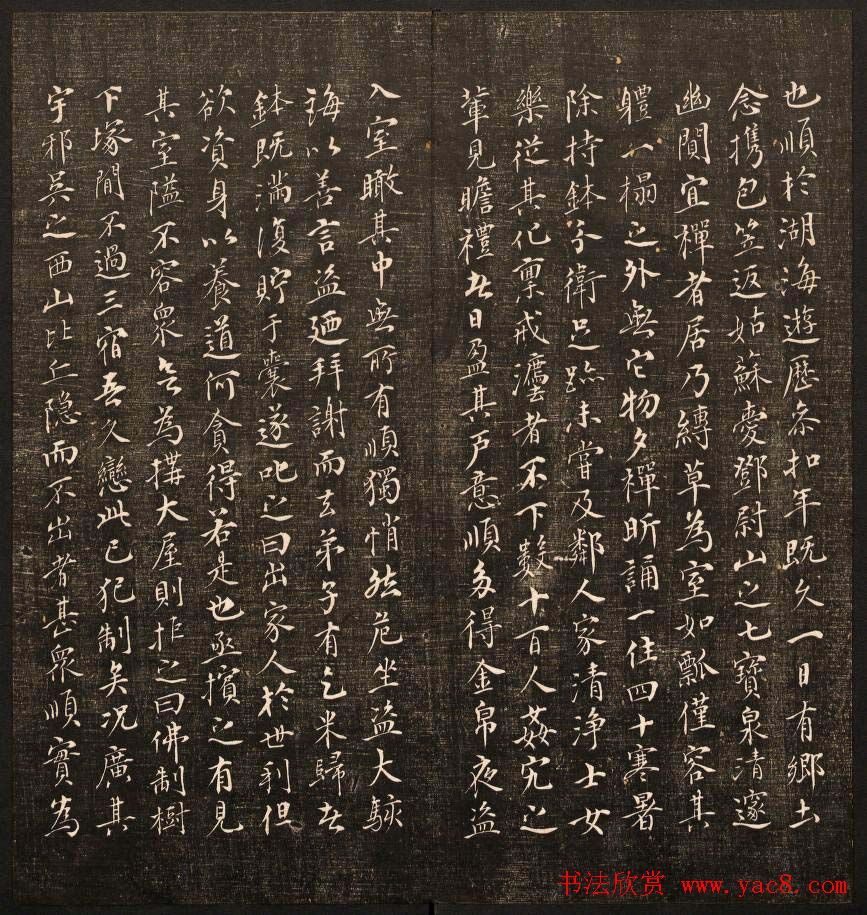 也順於湖海遊歷参扣年既久一日有鄉土
念携包笠返姑蘇愛鄧尉山之七寶泉清邃
幽閴宜禪者居乃縛草為室如瓢僅容其
軆一榻之外無它物夕禪昕誦一住四十寒暑
除持鉢分衛足跡未嘗及鄰人家清淨士女
樂從其化稟戒灋者不下數十百人姦宄之
輩見瞻禮者日盈其戶意順多得金帛夜盜
入室瞰其中無所有順獨悄然危坐盜大駭
誨以善言盜廼拜謝而去弟子有乞米歸者
鉢既滿復貯于囊遂叱之曰出家人於世利但
欲資身以養道何貪得若是也亟擯之有見
其室隘不容衆欲為搆大屋則拒之曰佛制樹
下塚間不過三宿吾久戀此已犯制矣况廣其
宇邪吳之西山比丘隐而不出者甚衆順實為
书法欣赏 www.yac8.com